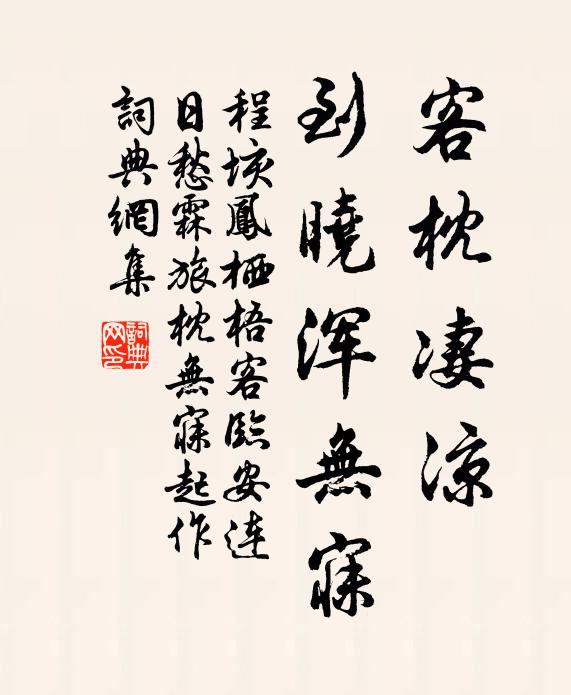 客枕凄涼
到曉渾無寐
程垓鳳栖梧客臨安連
日愁霖旅枕無寐起作
詞典網集
詞典
网印